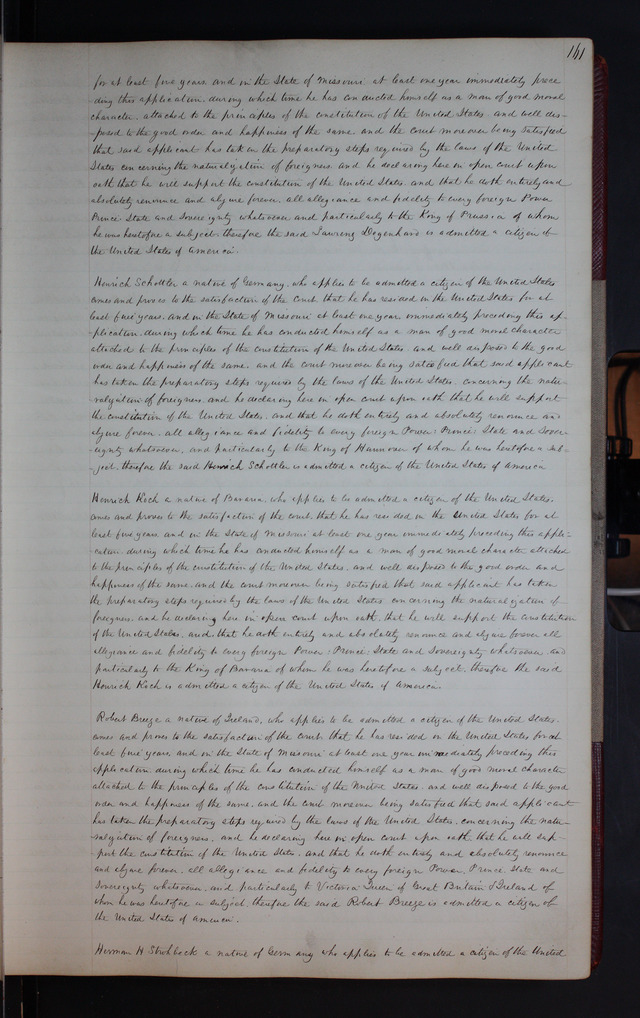 161
for at least five years and in the State of Missouri at least one year immediately prece
ding this application, during which time he has conducted himself as a man of good moral
character, attached to the principles of the constitution of the United States, and well dis-
-posed to the good order and happiness of the same, and the court moreover being satisfied
that said applicant has taken the preparatory steps required by the laws of the United
States concerning the naturalization of foreigners and he declaring here in open court upon
oath that he will support the constitution of the United States and that he doth entirely and
absolutely renounce and abjure forever all allegiance and fidelity to every foreign Power
Prince State and Sovereignty whatsoever and particularly to the King of Prussia of whom
he was heretofore a subject, therefore the said Lawrenz Degenhard is admitted a citizen of
the United States of America.
Henrich Schottler a native of Germany, who applies to be admitted a citizen of the United States
comes and proves to the satisfaction of the Court that he has resided in the United States for at
least five years, and in the State of Missouri at least one year immediately preceding this ap-
-plication, during which time he has conducted himself as a man of good moral character
attached to the principles of the constitution of the United States, and well disposed to the good
order and happiness of the same, and the court moreover being satisfied that said applicant
has taken the preparatory steps required by the laws of the United States, concerning the natu-
ralization of foreigners, and he declaring here in open court upon oath that he will support
the constitution of the United States, and that he doth entirely and absolutely renounce and
abjure forever, all allegiance and fidelity to every foreign Power, Prince, State and Sover
eignty whatsoever, and particularly to the King of Hannover of whom he was heretofore a sub-
ject, therefore the said Henrich Schottler is admitted a citizen of the United States of America
Henrich Koch a native of Bavaria, who applies to be admitted a citizen of the United States,
comes and proves to the satisfaction of the court, that he has resided in the United States for at
least five years and in the State of Missouri at least one year immediately preceding this appli-
cation, during which time he has conducted himself as a man of good moral character attached
to the principles of the constitution of the United States, and well disposed to the good order and
happiness of the same, and the court moreover being satisfied that said applicant has taken
the preparatory steps required by the laws of the United States concerning the naturalization of
foreigners, and he declaring here in open court upon oath, that he will support the constitution
of the United States, and that he doth entirely and absolutely renounce and abjure forever all
allegiance and fidelity to every foreign Power, Prince, State and Sovereignty whatsoever, and
particularly to the King of Bavaria of whom he was heretofore a subject, therefore the said
Henrich Koch is admitted a citizen of the United States of America.
Robert Breeze a native of Ireland, who applies to be admitted a citizen of the United States,
comes and proves to the satisfaction of the court that he has resided in the United States for at
least five years, and in the State of Missouri at least one year immediately preceding this
application during which time he has conducted himself as a man of good moral character
attached to the principles of the constitution of the United States, and well disposed to the good
order and happiness of the same, and the court moreover being satisfied that said applicant
has taken the preparatory steps required by the laws of the United States, concerning the natu-
ralization of foreigners, and he declaring here in open court upon oath, that he will sup-
-port the constitution of the United States, and that he doth entirely and absolutely renounce
and abjure forever, all allegiance and fidelity to every foreign Power, Prince, State and
Sovereignty whatsoever, and particularly to Victoria Queen of Great Britain & Ireland of
whom he was heretofore a subject, therefore the said Robert Breeze is admitted a citizen of
the United States of America.
Herman H Strohbeck a native of Germany who applies to be admitted a citizen of the United